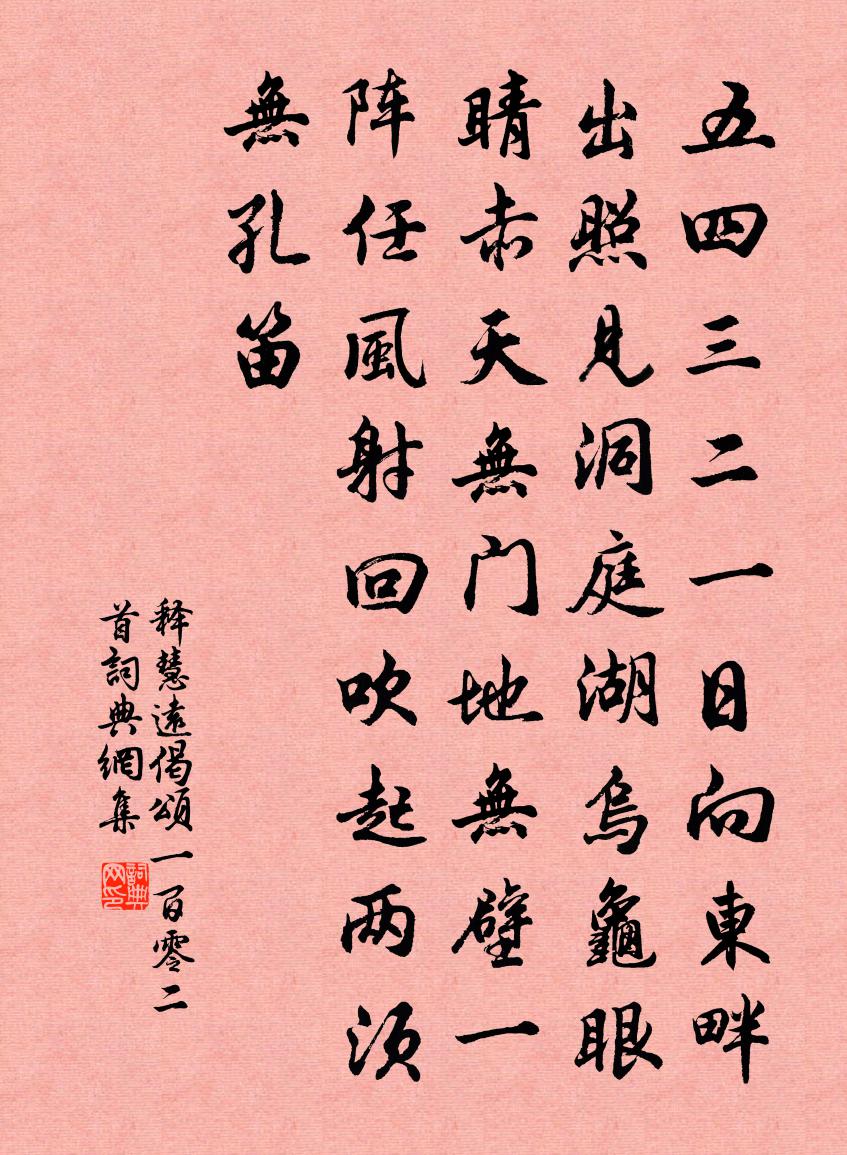 五四三二一日向東畔
出照見洞庭湖烏龜眼
睛赤天無门地無壁一
阵任風射回吹起两须
無孔笛
释慧遠偈頌一百零二
首詞典網集
詞典网印